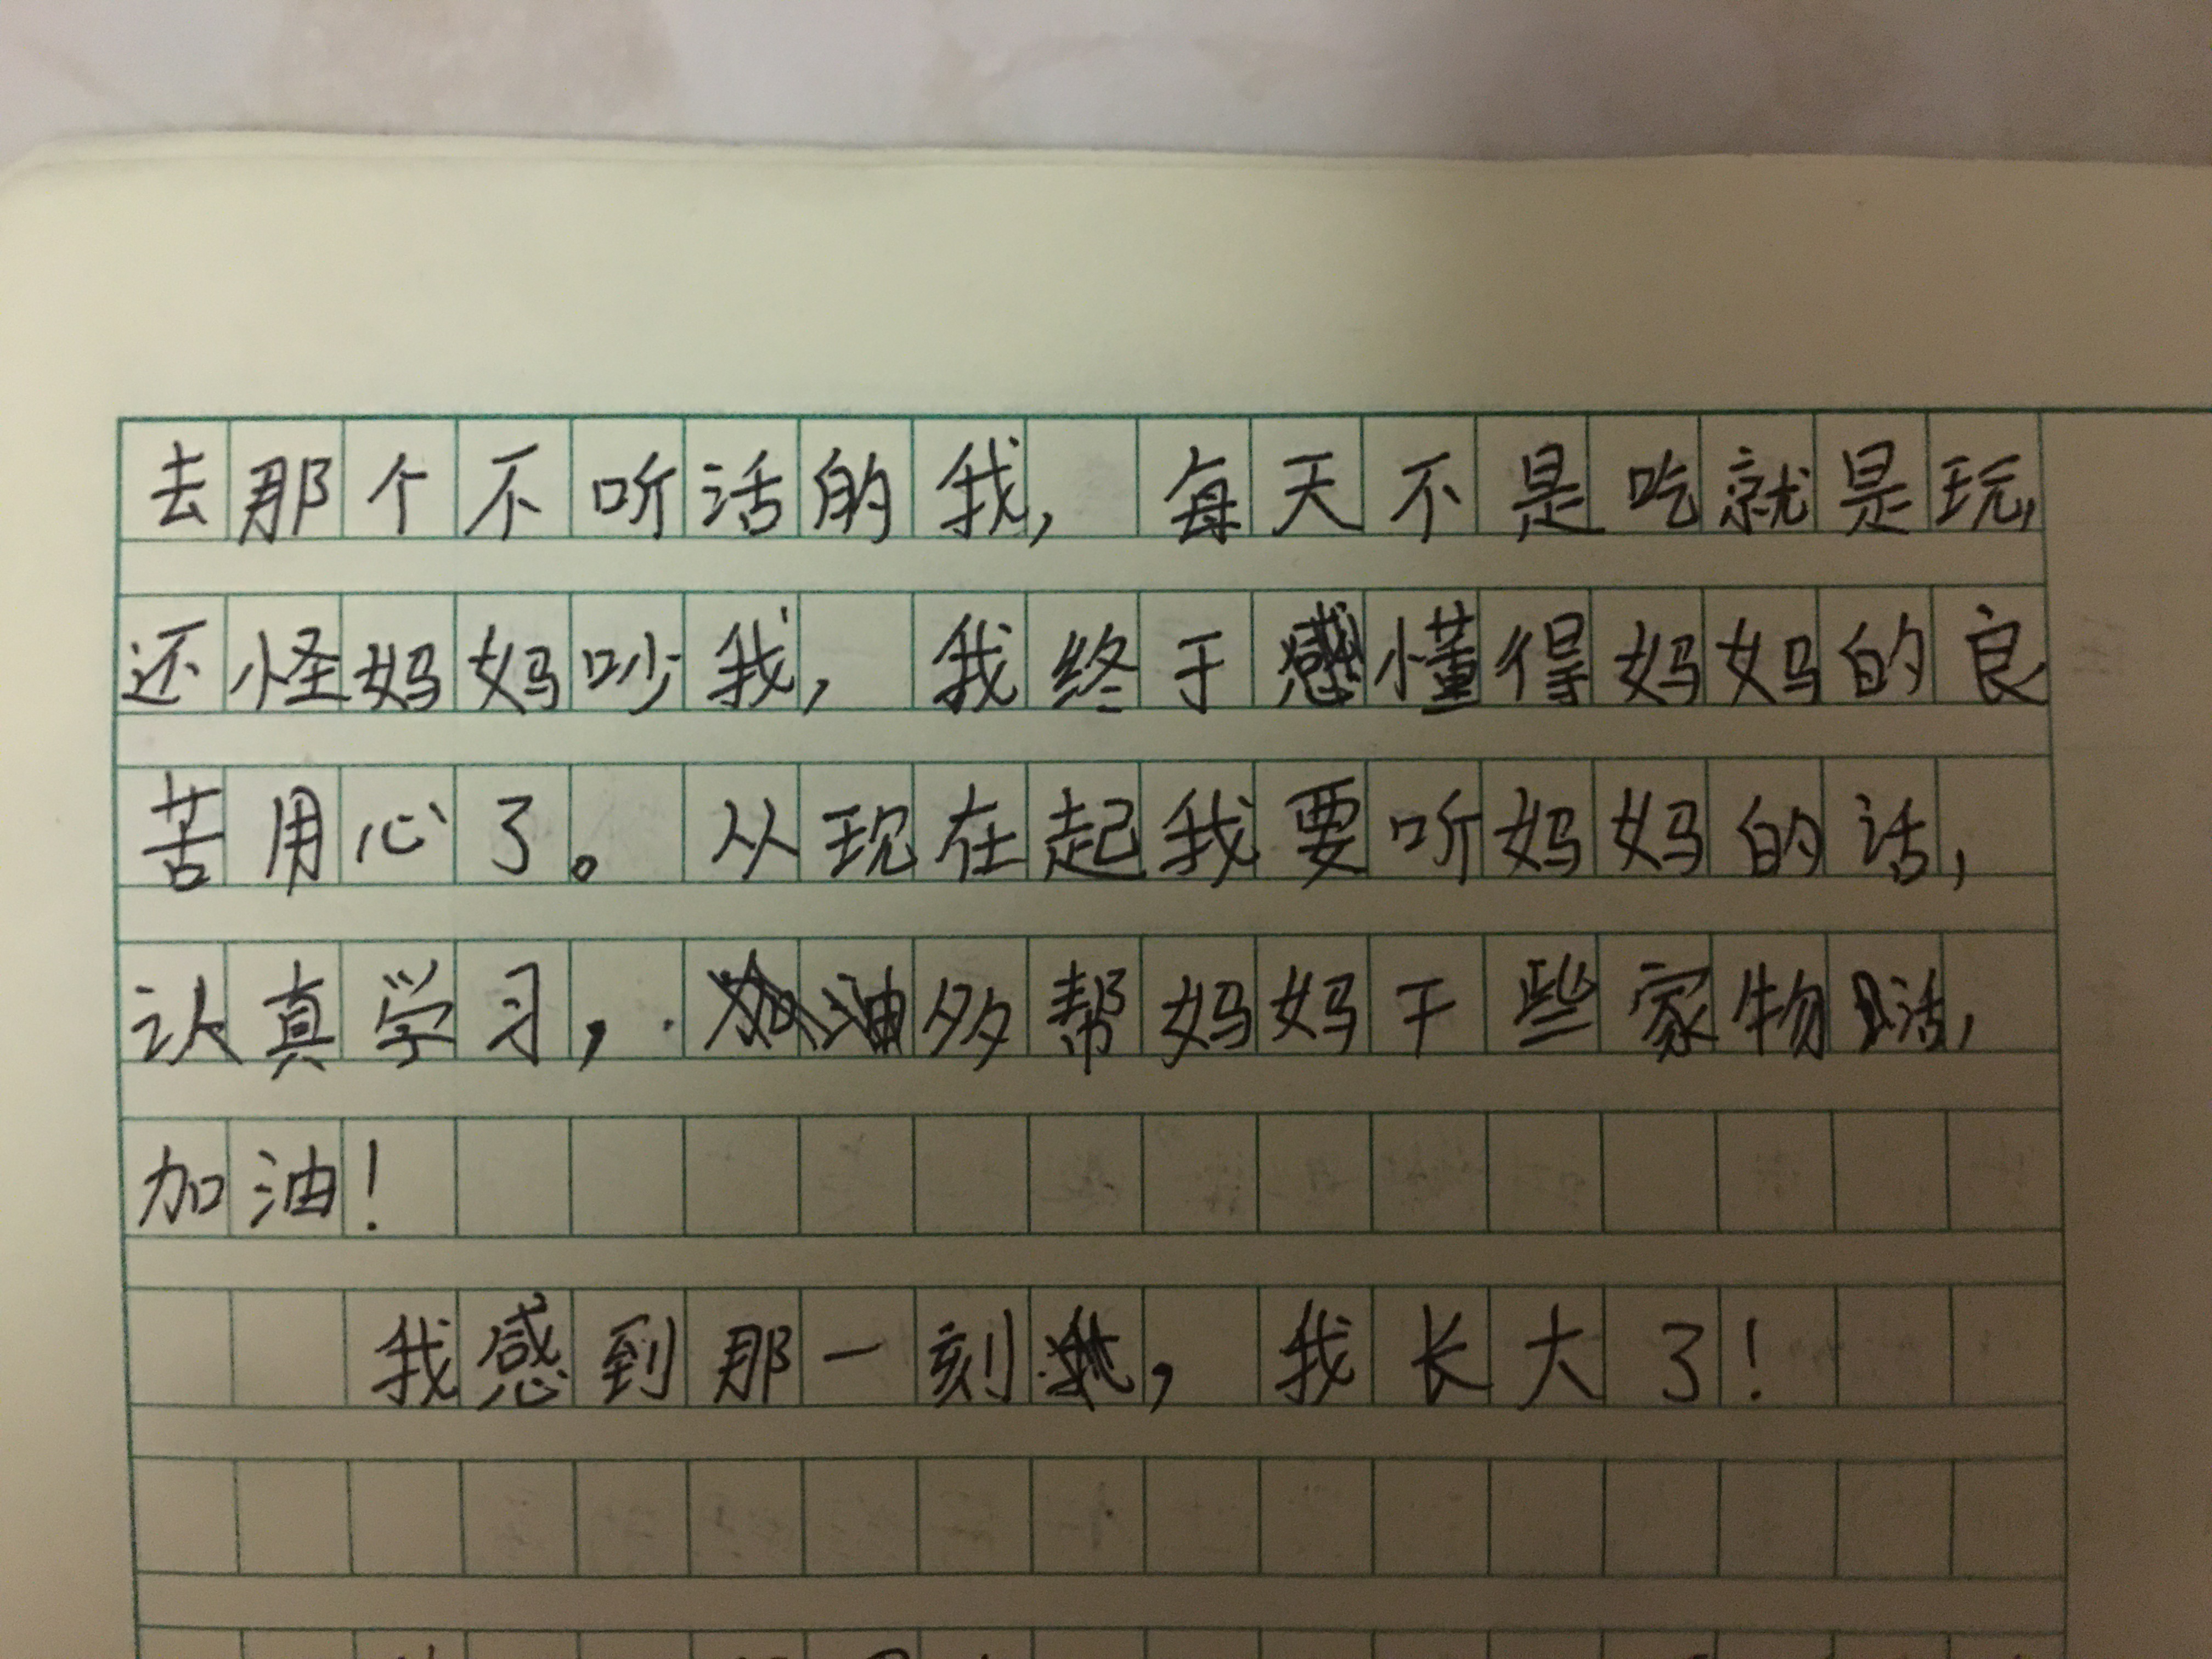 去那个不听话的我，每天不是吃就是玩，
还怪妈妈吵我，我终于懂得妈妈的良
苦用心了。从现在起我要听妈妈的话，
认真学习，多帮妈妈干些家物活，
加油！
我感到那一刻，我长大了！